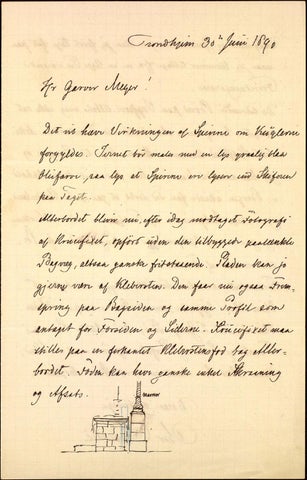 Trondhjem 30te Juni 1890
Hr Garver Meyer!
Det vil hæve Virkningen af Spirene om Kuglerne
forgyldes. Ternet bör males med en lys graalig blaa
Oliefarve, saa lys at Spirene er lysere end Skiferen
paa Taget.
Alterbordet bliver nu, efter idag modtaget Fotografi
af Krucifixet, opfört uden den tilbyggede
altsaa ganske fritstaaende. Pladen kan jo
gjerne være af Klebersten. Den faar nu ogsaa Frem-
spring paa Bagsiden og samme Profil som
antaget for Forsiden og Siderne. Krucifixet maa
stilles paa en firkantet Klebestensfod bag Alter-
bordet. Foden kan have ganske enkel Skraaning
og Afsats.
Marmor